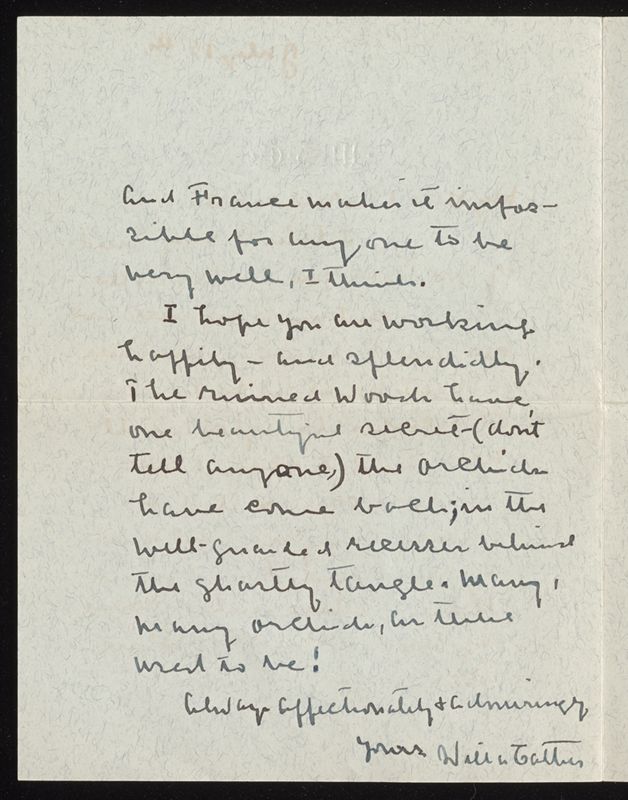 and France makes it impos-
sible for any one to be
very well, I think.
I hope you are working
happily - and splendidly.
The ruined woods have
one beautiful secret - (don't
tell anyone,) the orchids
have come back; in the
well-guarded recesses behind
the ghastly tangle. Many,
many orchids, as there
used to be!
Always affectionately & admiringly
yours Willa Cather